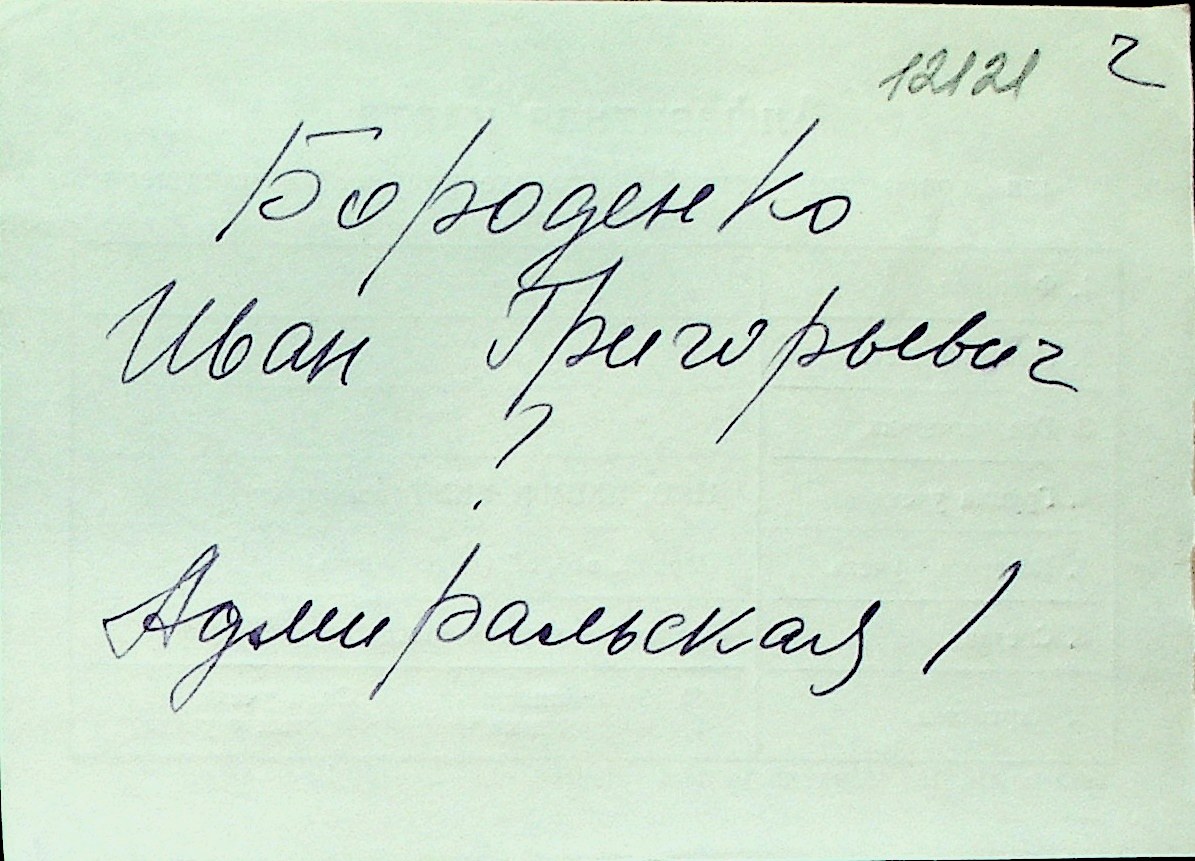 12121 ч
Бороденко
Иван Григорьевич
?
Адмиральская 1